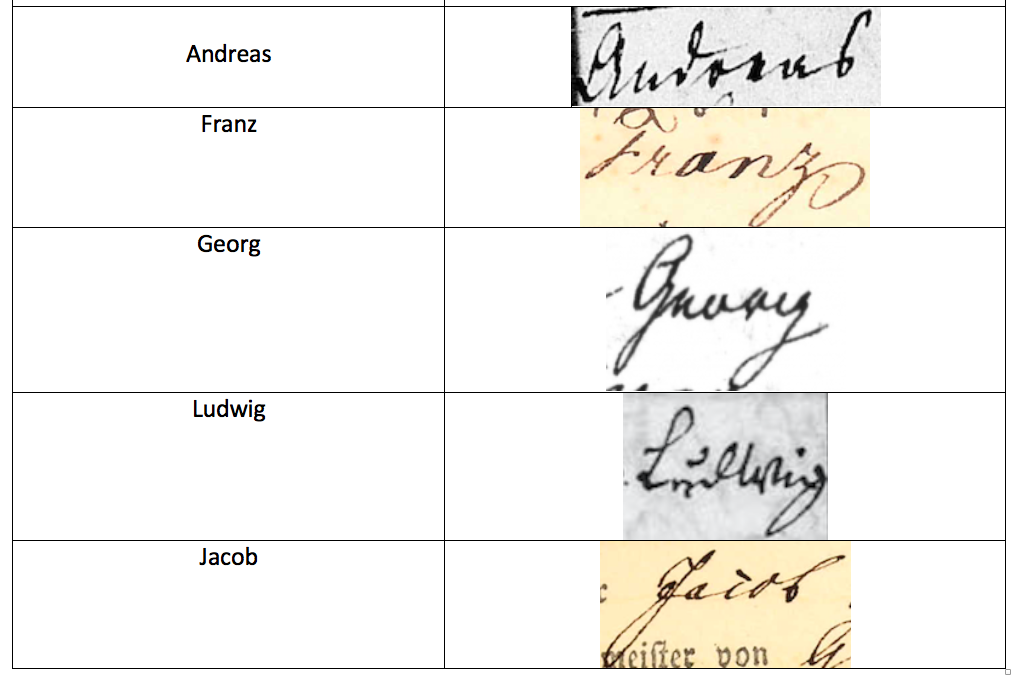 Andreas Andreas
Franz Franz
Georg Georg
Ludwig Ludwig
Jacob Jacob
meister von G